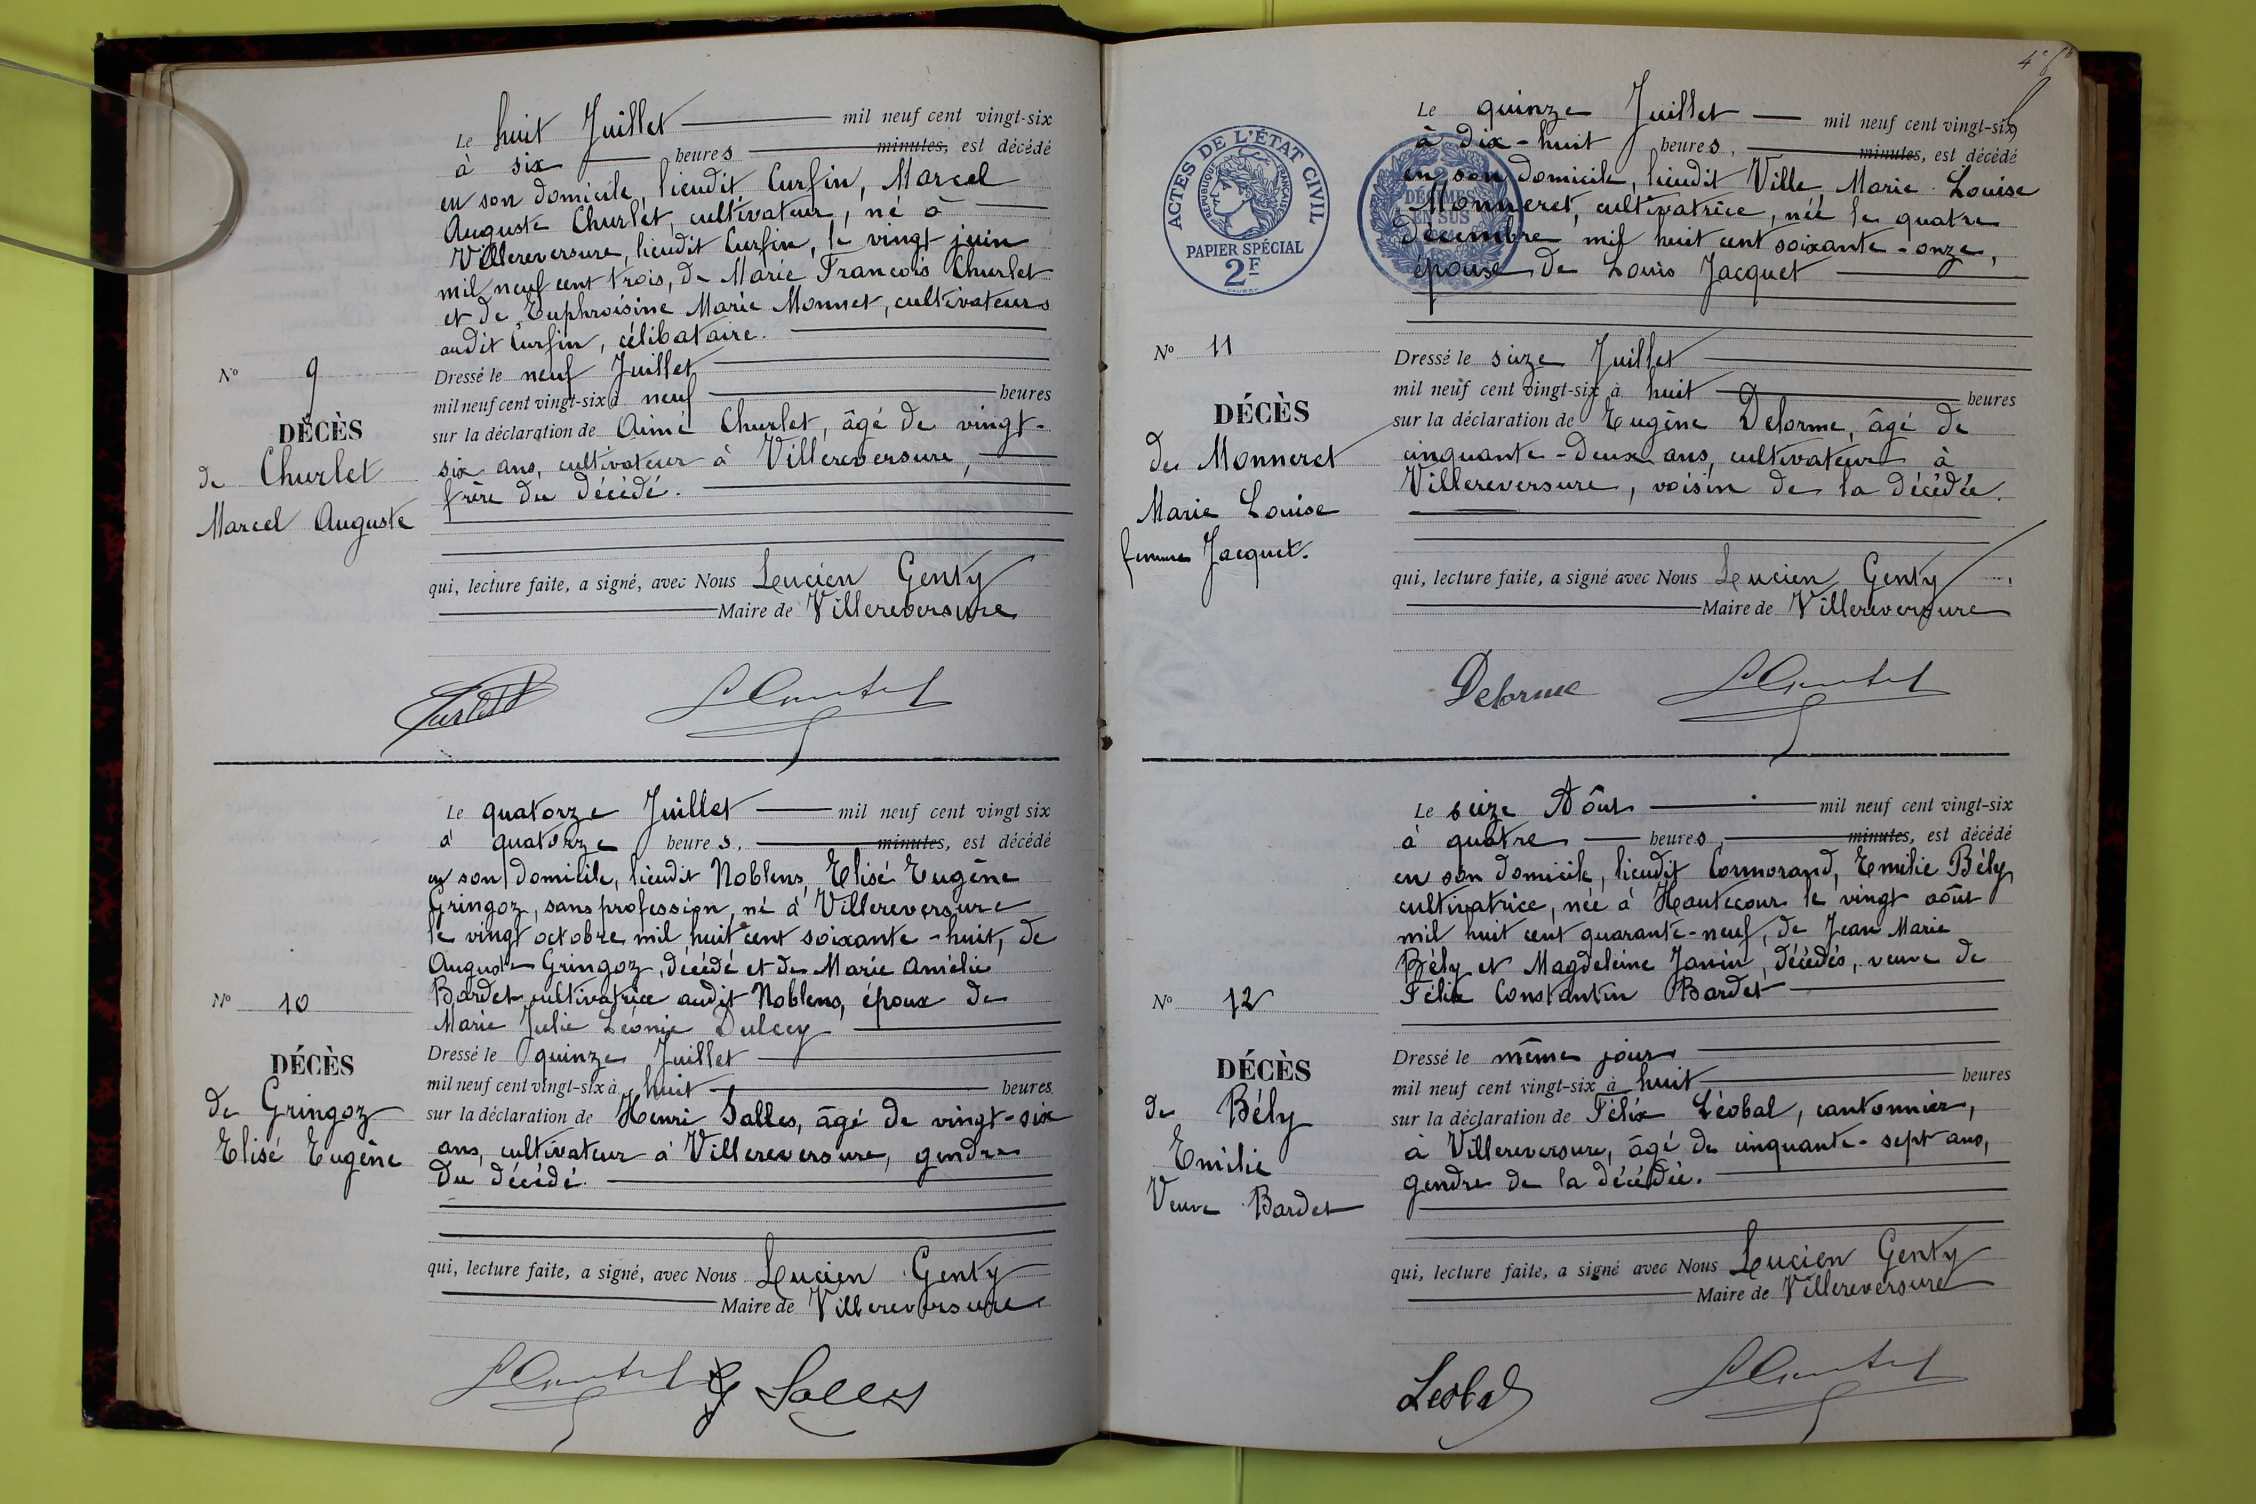 Le huit Juillet mil neuf cent vingt-six
à six heures minutes, est décédé
en son domicile, lieudit Curfin, Marcel
Auguste Churlet, cultivateur, né à
Villereversure, lieudit Curfin, le vingt juin
mil neuf cent trois, de Marie François Churlet
et de Euphroisine Marie Monnet, cultivateurs
audit Curfin, célibataire.
Nº 9
DÉCÈS
de Churlet
Marcel Auguste
Dressé le neuf Juillet
mil neuf cent vingt-six à neuf heures
sur la déclaration de Aimé Churlet, âgé de vingt-
six ans, cultivateur à Villereversure,
frère du décédé.
qui, lecture faite, a signé, avec Nous Lucien Genty
Maire de Villereversure
Le quatorze Juillet mil neuf cent vingt six
à quatorze heures, minutes, est décédé
en son domicile, lieudit Noblens, Elisé Eugène
Gringoz, sans profession, né à Villereversure
le vingt octobre mil huit cent soixante-huit, de
Auguste Gringoz, décédé et de Marie Amélie
Bardet cultivatrice audit Noblens, époux de
Marie Julie Léonie Dulcey
Nº 10
DÉCÈS
de Gringoz
Elisé Eugène
Dressé le quinze Juillet
mil neuf cent vingt-six à huit heures
sur la déclaration de Henri Salles, âgé de vingt-six
ans, cultivateur à Villereversure, gendre
du décédé.
qui, lecture faite, a signé, avec Nous Lucien Genty
Maire de Villereversure
Salles
ACTES DE L'ÉTAT CIVIL
RÉPUBLIQUE FRANÇAISE
PAPIER SPÉCIAL
2F
DÉCIMES
EN SUS
Le quinze Juillet mil neuf cent vingt-six
à dix-huit heures, minutes, est décédé
en son domicile, lieudit Ville, Marie Louise
Monneret, cultivatrice, née le quatre
décembre mil huit cent soixante-onze,
épouse de Louis Jacquet
Nº 11
DÉCÈS
de Monneret
Marie Louise
femme Jacquet.
Dressé le seize Juillet
mil neuf cent vingt-six à huit heures
sur la déclaration de Eugène Delorme, âgé de
cinquante-deux ans, cultivateur à
Villereversure, voisin de la décédée.
qui, lecture faite, a signé avec Nous Lucien Genty
Maire de Villereversure
Delorme
Le seize Aôut mil neuf cent vingt-six
à quatre heures, minutes, est décédé
en son domicile, lieudit Cormorand, Emilie Bély,
cultivatrice, née à Hautecour le vingt aôut
mil huit cent quarante-neuf, de Jean Marie
Bély et Magdeleine Janin, décédés, veuve de
Félix Constantin Bardet
Nº 12
DÉCÈS
de Bély
Emilie
Veuve Bardet
Dressé le même jour
mil neuf cent vingt-six à huit heures
sur la déclaration de Félix Léobal, cantonnier,
à Villereversure, âgé de cinquante-sept ans,
gendre de la décédée.
qui, lecture faite, a signé avec Nous Lucien Genty
Maire de Villereversure
Leobal